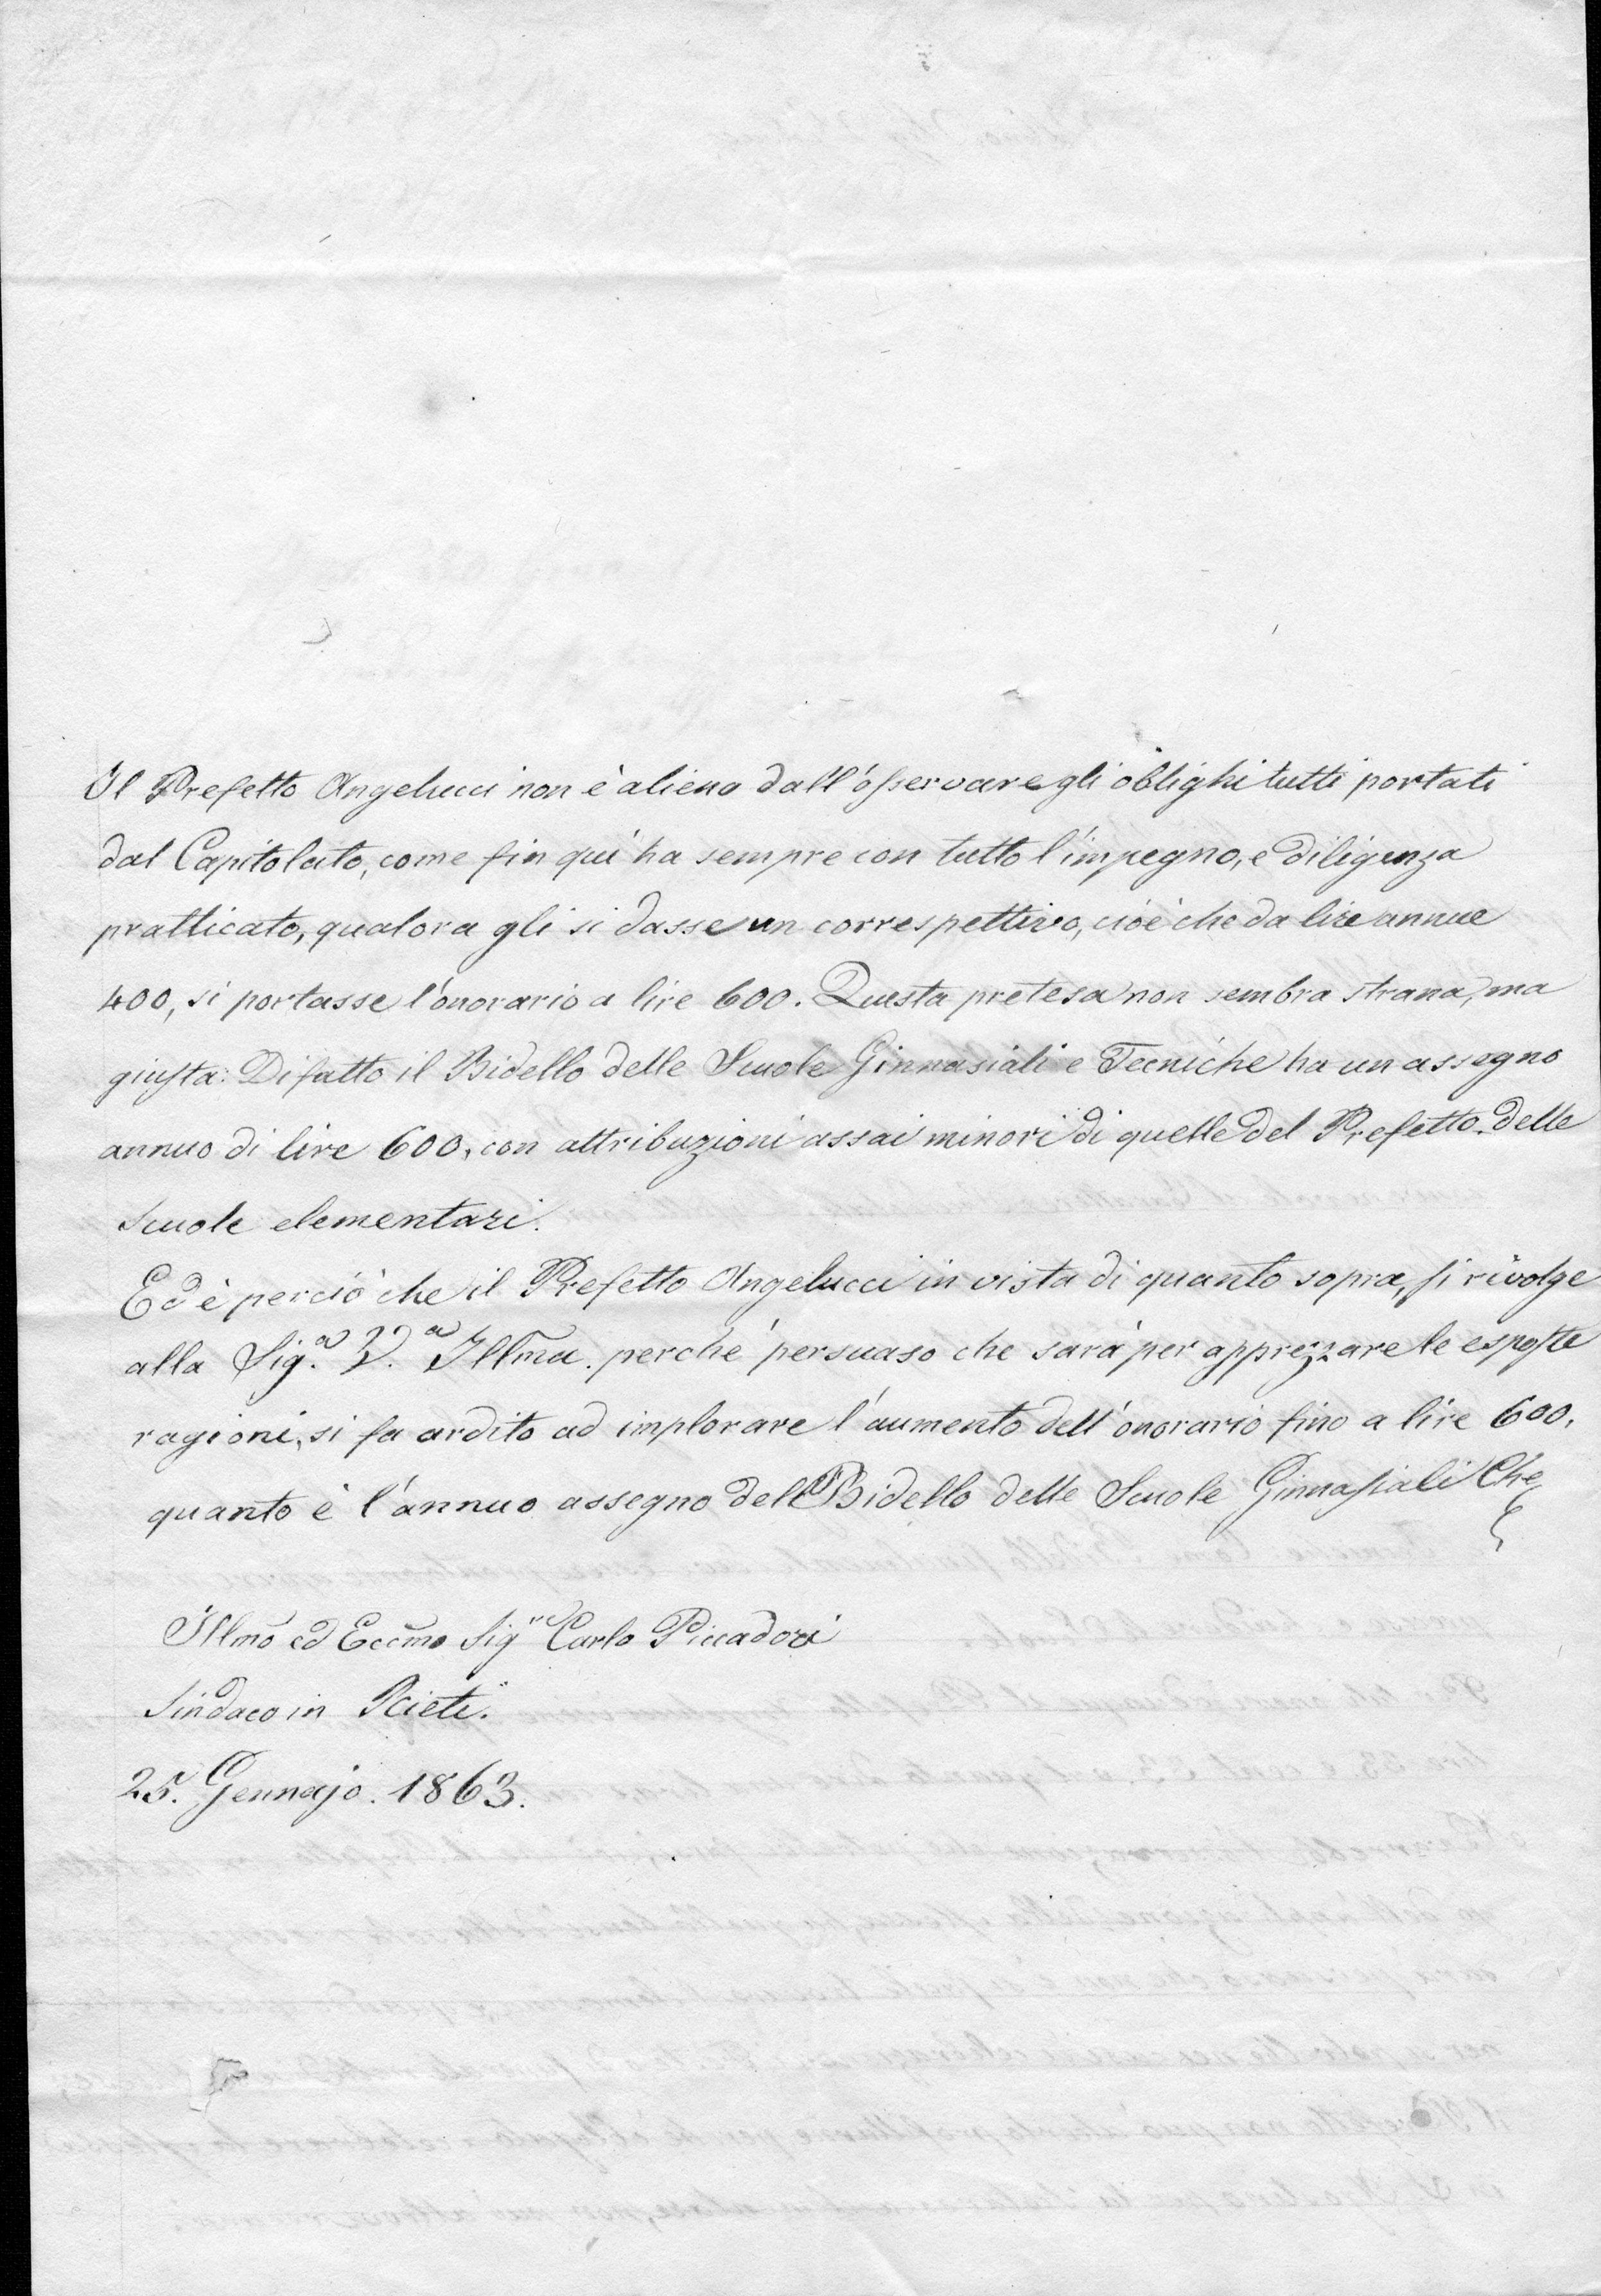 Il Prefetto Angelucci non è alieno dall'osservare gli oblighi tutti portati
dal Capitolato, come fin quì ha sempre con tutto l'impegno, e diligenza
pratticato, qualora gli si dasse un correspettivo, cioè che da lire annue
400, si portasse l'onorario a lire 600. Questa pretesa non sembra strana, ma
giusta: Difatto il Bidello delle Scuole Ginnasiali e Tecniche ha un assegno
annuo di lire 600, con attribuzioni assai minori di quelle del Prefetto delle
Scuole elementari.
Ed è perciò che il Prefetto Angelucci in vista di quanto sopra, si rivolge
alla Sig.a V.a Illma. perchè persuaso che sarà per apprezzare le esposte
ragioni, si fa ardito ad implorare l'aumento dell'onorario fino a lire 600,
quanto è l'annuo assegno del Bidello delle Scuole Ginnasiali Che
Illmo ed Eccmo Sig.r Carlo Piccadori
Sindaco in Rieti.
25. Gennajo. 1863.